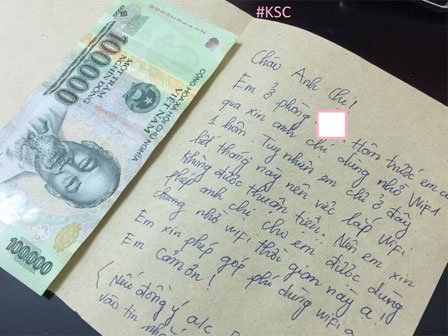 #KSC
CỘNG HÒA XÃ HỘI CHỦ NGHĨA
VIỆT NAM
MỘT TRĂM
NGHÌN ĐỒNG
100000
100000
Chào Anh Chị!
Em ở phòng . Hôm trước em có
qua xin anh chị dùng nhờ Wifi
1 hôm. Tuy nhiên em chỉ ở đây
hết tháng này nên việc lắp Wifi
không được thuận tiện. Nên em xin
phép anh chị cho em được dùng
chung nhờ wifi thời gian này ạ!
Em xin phép góp phí dùng wifi ạ
Em cảm ơn!
(Nếu đồng ý a/c
vào tin